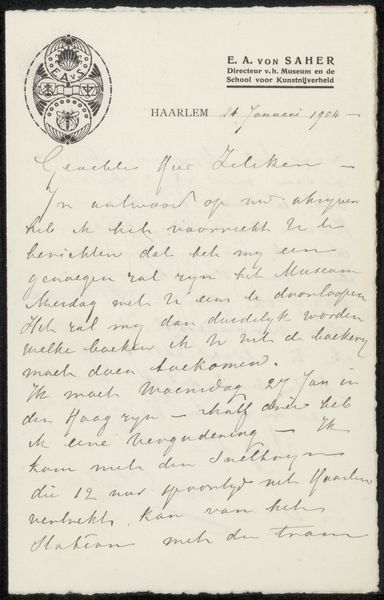 E A v S
E. A. VON SAHER
Directeur v.h. Museum en de
School voor Kunstnijverheid
HAARLEM 21 Januari 1904 –
Geachte Heer Zilcken –
In antwoord op uw schrijven
heb ik het voorrecht U te
berichten dat het mij een
genoegen zal zijn het Museum
Mesdag met U eens te doorloopen
Het zal mij dan duidelijk worden
welke boeken ik U uit de boekerij
moet doen toekomen.
Ik moet Woensdag 27 Jan in
den Haag zijn – half drie heb
ik eene Vergadering – Ik
kom met den Sneltrein
die 12 uur spoortijd uit Haarlem
vertrekt. kan van het
Station met de tram